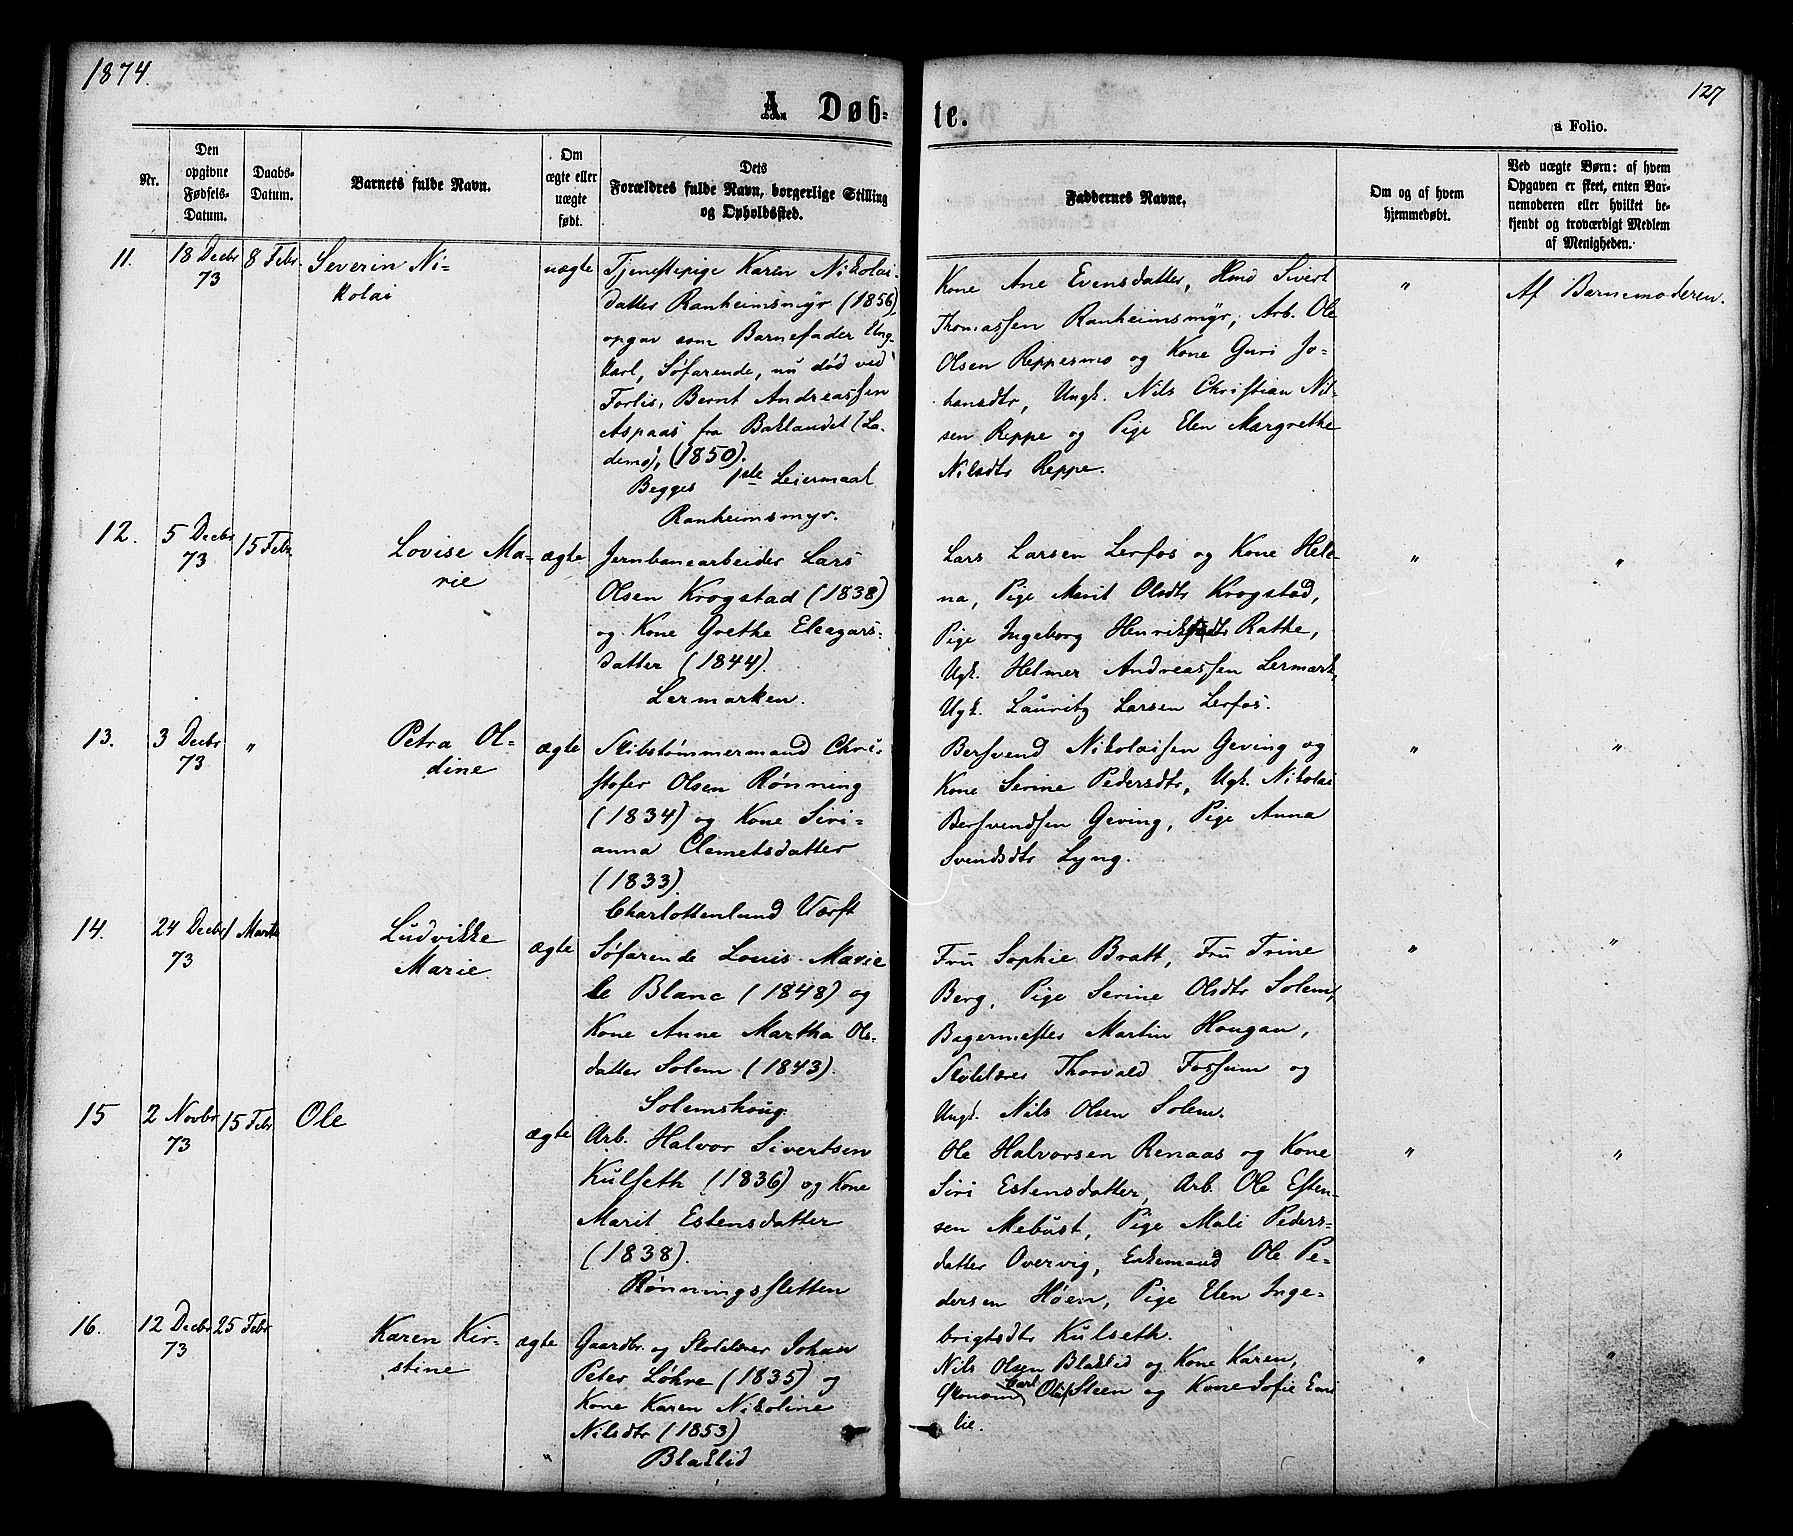 1874.
127
A. Døb-
te.
a Folio.
Nr.
Den
opgivne
Fødsels-
Datum.
Daabs-
Datum.
Barnets fulde Navn.
Om
ægte eller
uægte
født.
Dets
Forældres fulde Navn, borgerlige Stilling
og Opholdssted.
Faddernes Navne.
Om og af hvem
hjemmedøbt.
Ved uægte Børn: af hvem
Opgaven er skeet, enten Bar-
nemoderen eller hvilket be-
kjendt og troværdigt Medlem
af Menigheden.
11.
18 Decbr
73
8 Febr.
Severin Ni-
kolai
uægte
Tjenestepige Karen Nikolai-
datter Ranheimsmyr (1856),
opgav som Barnefader Ung-
karl, Søfarende, nu død ved
Forlis, Bernt Andreassen
Aspaas, fra Baklandet (La-
demo), (1850).
Begges 1ste Leiermaal
Ranheimsmyr.
Kone Ane Evensdatter, Hmd Sivert
Thomassen Ranheimsmyr, Arb. Ole
Olsen Reppesmo og Kone Guri Jo-
hansdtr, Ungk. Nils Christian Nil-
sen Reppe og Pige Elen Margrethe
Nilsdtr Reppe.
"
Af Barnemoderen.
12.
5 Decbr
73
15 Febr
Lovise Ma-
rie
ægte
Jernbanearbeider Lars
Olsen Krogstad (1838)
og Kone Grethe Eleazars-
datter (1844).
Lermarken.
Lars Larsen Lerfos og Kone Hele-
na, Pige Marit Olsdtr Krogstad,
Pige Ingeborg Henriksdtr Rathe,
Ugk. Helmer Andreassen Lermark,
Ugk. Lauritz Larsen Lerfos.
"
"
13.
3 Decbr
73
"
Petra Ol-
dine
ægte
Skibstømmermand Chri-
stofer Olsen Rønning
(1834) og Kone Siri-
anna Clemetsdatter
(1833).
Charlottenlund Værft
Bersvend Nikolaisen Geving og
Kone Serine Pedersdtr, Ugk. Nikolai
Bersvendsen Geving, Pige Anna
Svendsdtr Lyng.
"
"
14.
24 Decbr
73
1 Marts
Ludvikke
Marie
ægte
Søfarende Louis Marie
le Blanc (1848) og
Kone Anne Martha Ols-
datter Solem (1843).
Solemshoug.
Fru Sophie Bratt, Fru Trine
Berg, Pige Serine Olsdtr Solem,
Bagermester Martin Hougan,
Skolelærer Thorvald Fossum og
Ungk. Nils Olsen Solem.
"
"
15
2 Novbr
73
15 Febr
Ole
ægte
Arb. Halvor Sivertsen
Kulseth (1836) og Kone
Marit Estensdatter
(1838).
Rønningsletten
Ole Halvorsen Renaas og Kone
Siri Estensdatter, Arb. Ole Esten-
sen Mebust, Pige Mali Peders-
datter Overvig, Enkemand Ole Pe-
dersen Høen, Pige Elen Inge-
brigtsdtr Kulseth.
"
"
16.
12 Decbr
73
25 Febr
Karen Kir-
stine
ægte
Gaardbr. og Skolelærer Johan
Peter Løhre (1835) og
Kone Karen Nikoline
Nilsdtr (1853)
Blaklid
Nils Olsen Blaklid og Kone Karen,
Økonom Carl Olaf Steen og Kone Sofie Emi
lie.
"
"